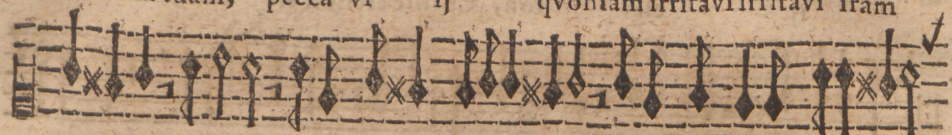 pecca vi ij qvoniam irritavi irritavi iram